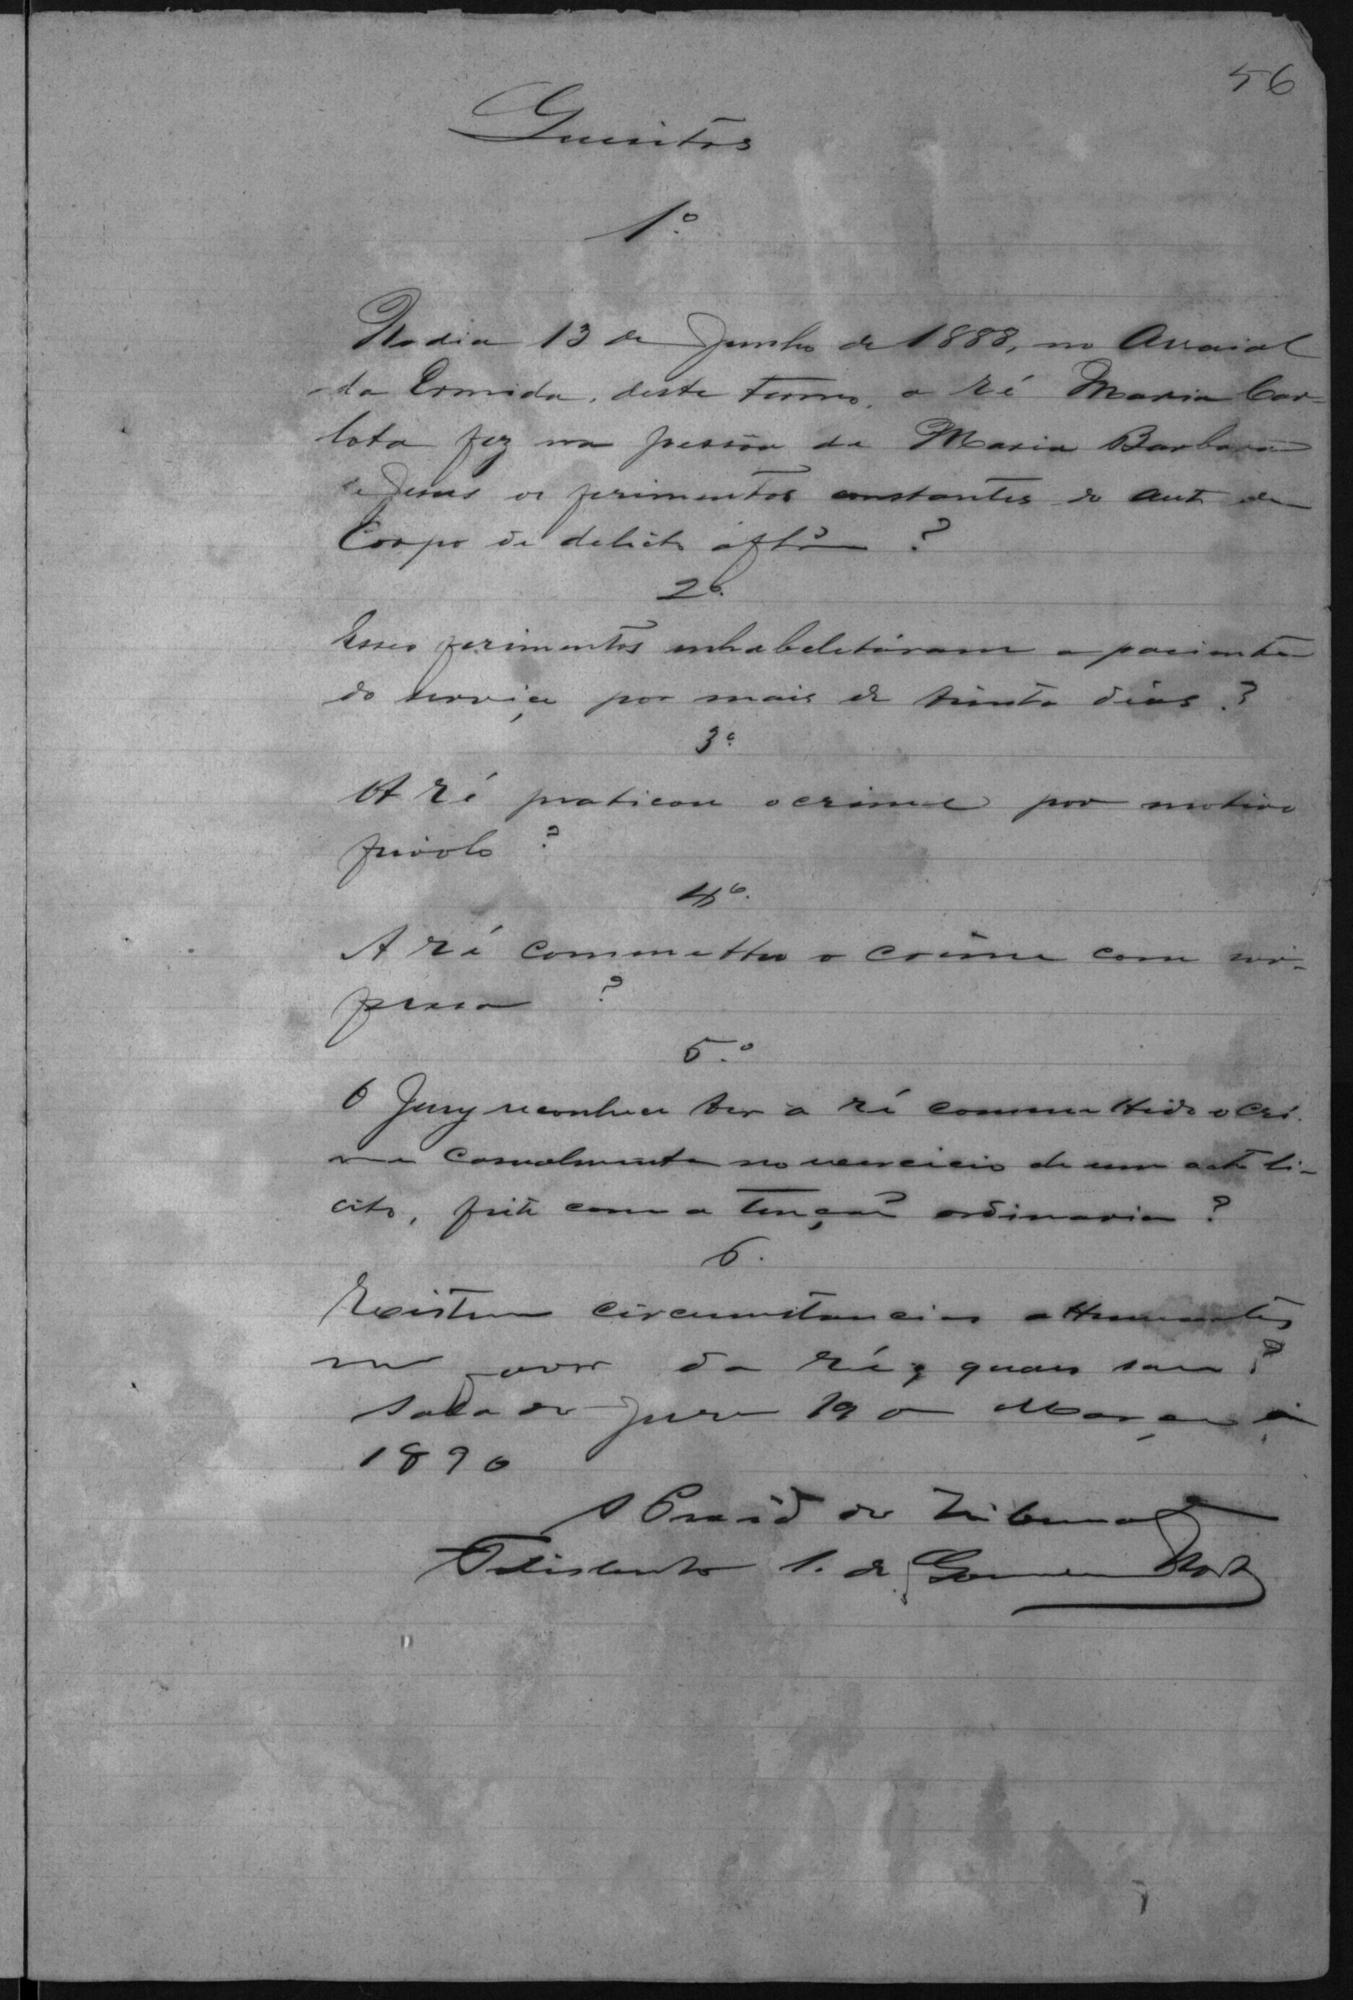 56
Quesitos
1º
No dia 13 de Junho de 1888, no Arraial
da Ermida, deste termo, a ré Maria Car-
lota fez na pessôa de Maria Barbara
de Jesus os ferimentos constantes do auto de
Corpo de delicto a fls
?
2º
Esses ferimentos inhabilitáram a paciente
do serviço por mais de trinta dias?
3º
A ré praticou o crime por motivo
frivolo?
4º
A ré commetteu o crime com sor-
presa?
5º
O Jury reconhece ter a ré commettido o cri-
me casualmente no exercicio de um acto li-
cito, feito com a tenção ordinaria?
6.
Existem circumstancias attenuantes
em favor da ré, quaes sam?
Sala do Jury 19 de Março de
1890
O Presid do Tribunal